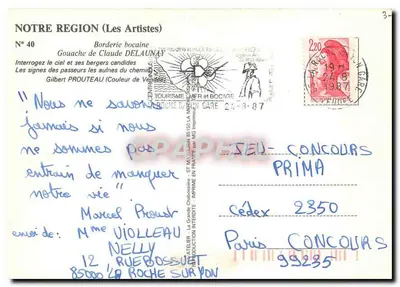 NOTRE REGION (Les Artistes)
N° 40 Borderie bocaine
Gouache de Claude DELAUNAY
Interrogez le ciel et ses bergers candides
Les signes des passeurs les aulnes du chemin
Gilbert PROUTEAU (Couleur de Vendée)
TOURISME MER et BOCAGE
GARE 24-8-87
2,20
24-8
1987
"Nous ne savons
jamais si nous
ne sommes pas
entrain de manquer
notre vie"
Marcel Proust
envoi de: Mme VIOLLEAU
NELLY
12 RUE BOSSUET
85000 LA ROCHE SUR YON
JEU-CONCOURS
PRIMA
Cédex 2350
Paris CONCOURS
99235